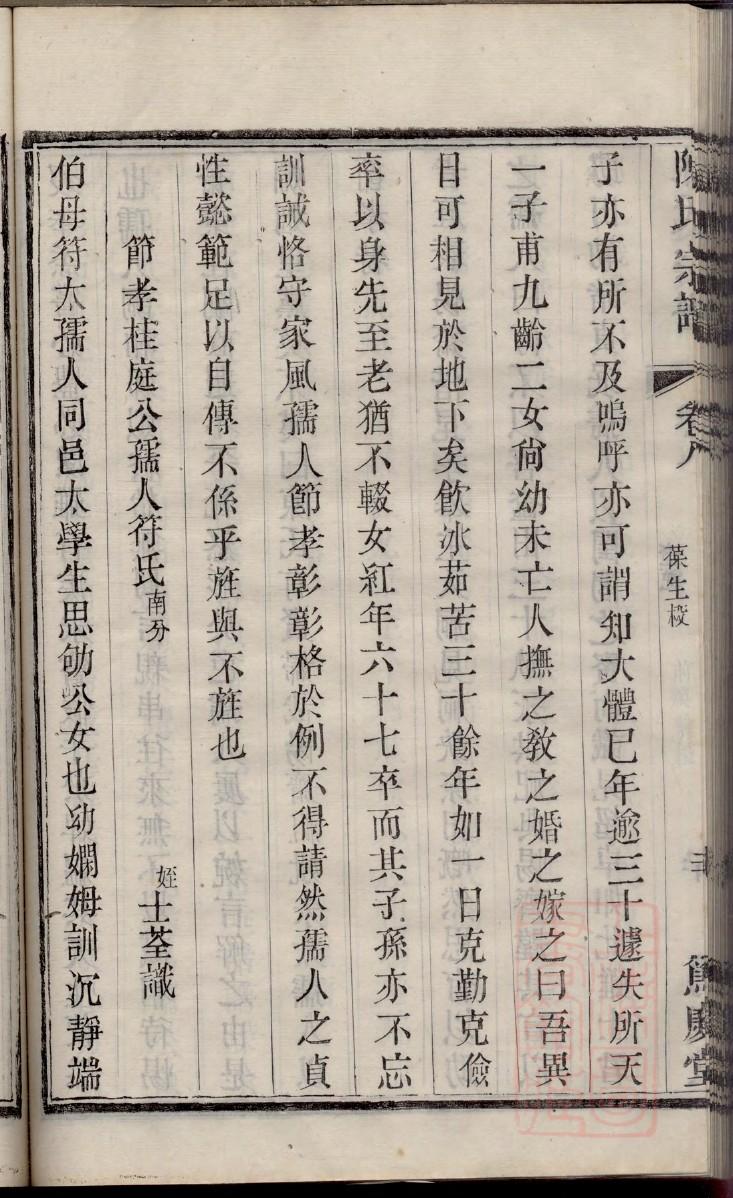 陳氏宗譜 卷八 葆生校 篤慶堂
子亦有所不及嗚呼亦可謂知大體已年逾三十遽失所天
一子甫九齡二女尙幼未亡人撫之敎之婚之嫁之曰吾異
日可相見於地下矣飮冰茹苦三十餘年如一日克勤克儉
率以身先至老猶不輟女紅年六十七卒而其子孫亦不忘
訓誡恪守家風孺人節孝彰彰格於例不得請然孺人之貞
性懿範足以自傳不係乎旌與不旌也
節孝桂庭公孺人符氏南分
姪士荃識
伯母符太孺人同邑太學生思劬公女也幼嫻姆訓沉靜端